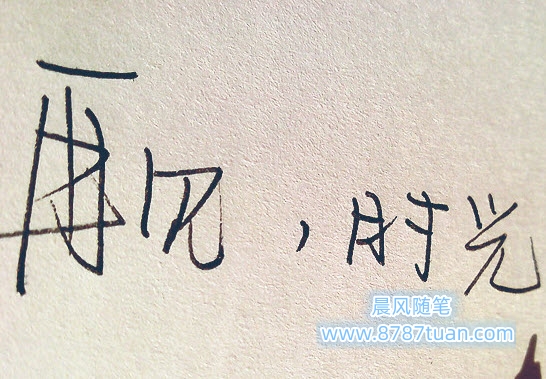 再见，时光
晨风随笔
www.8787tuan.com